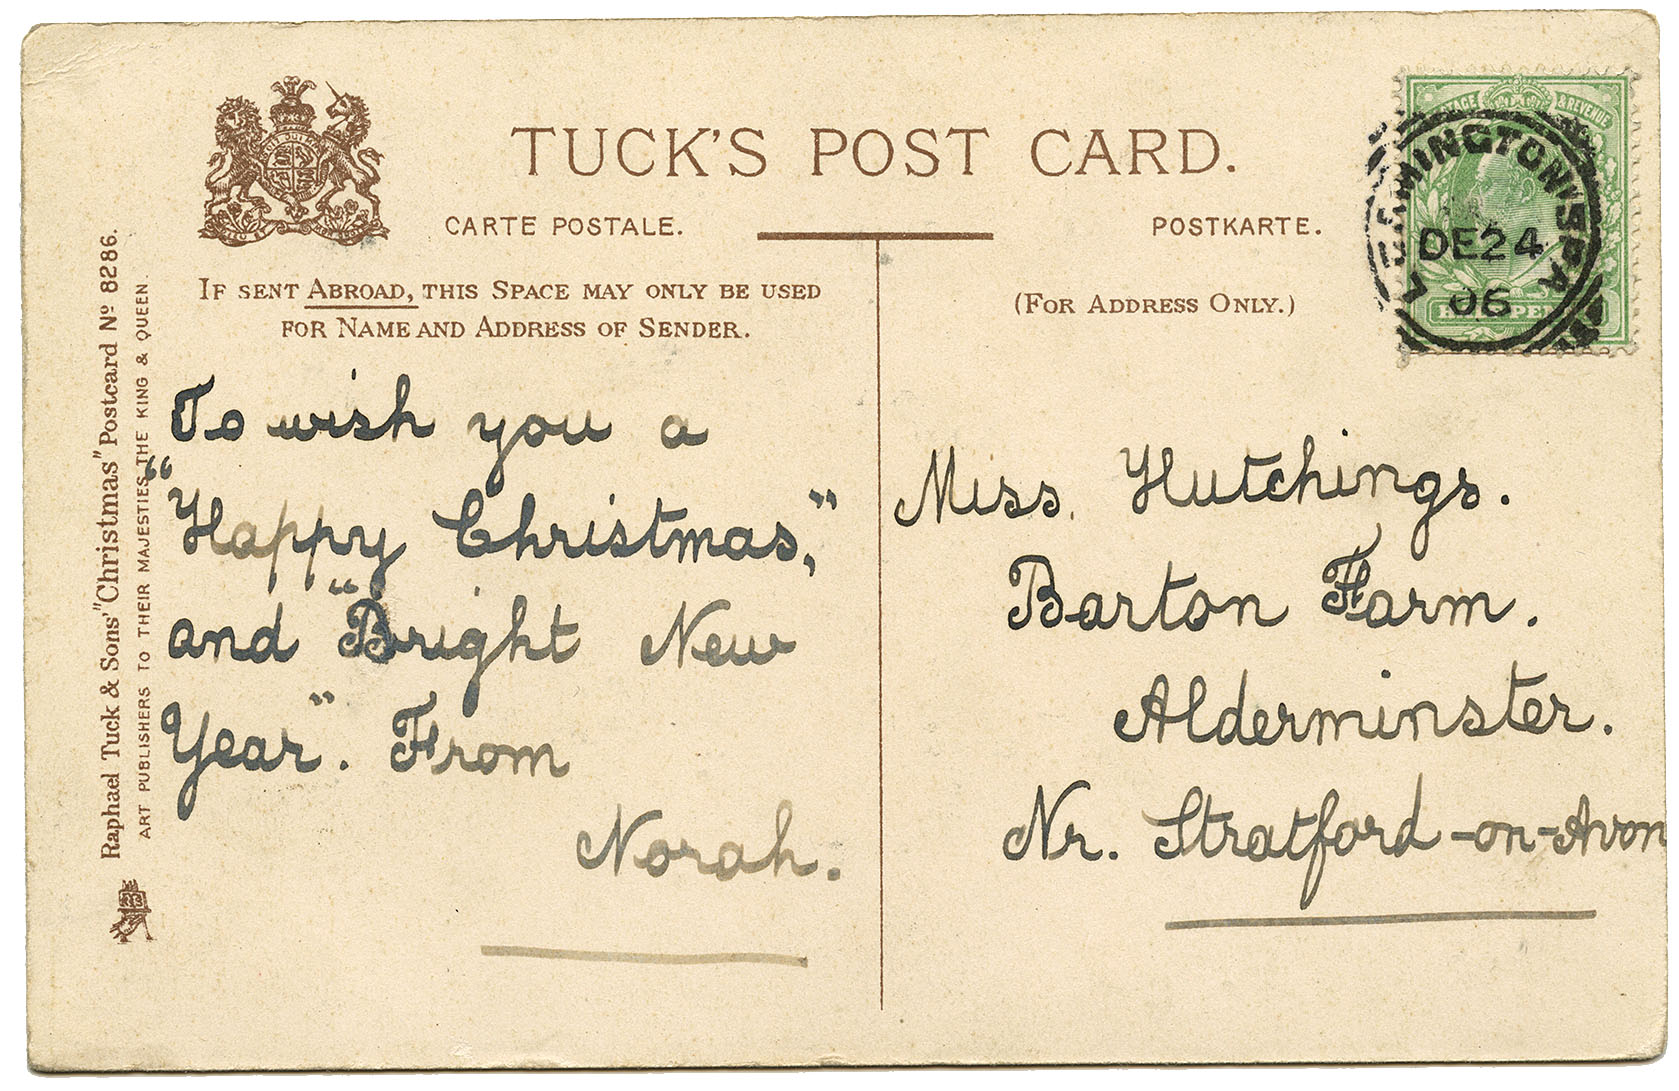 TUCK'S POST CARD.
CARTE POSTALE.
POSTKARTE.
IF SENT ABROAD, THIS SPACE MAY ONLY BE USED
FOR NAME AND ADDRESS OF SENDER.
(FOR ADDRESS ONLY.)
Raphael Tuck & Sons' "Christmas" Postcard No 8286.
ART PUBLISHERS TO THEIR MAJESTIES THE KING & QUEEN.
To wish you a
"Happy Christmas,"
and "Bright New
Year". From
Norah.
Miss. Hutchings.
Barton Farm.
Alderminster.
Nr. Stratford-on-Avon
& REVENUE
LEAMINGTON SPA
DE 24
06